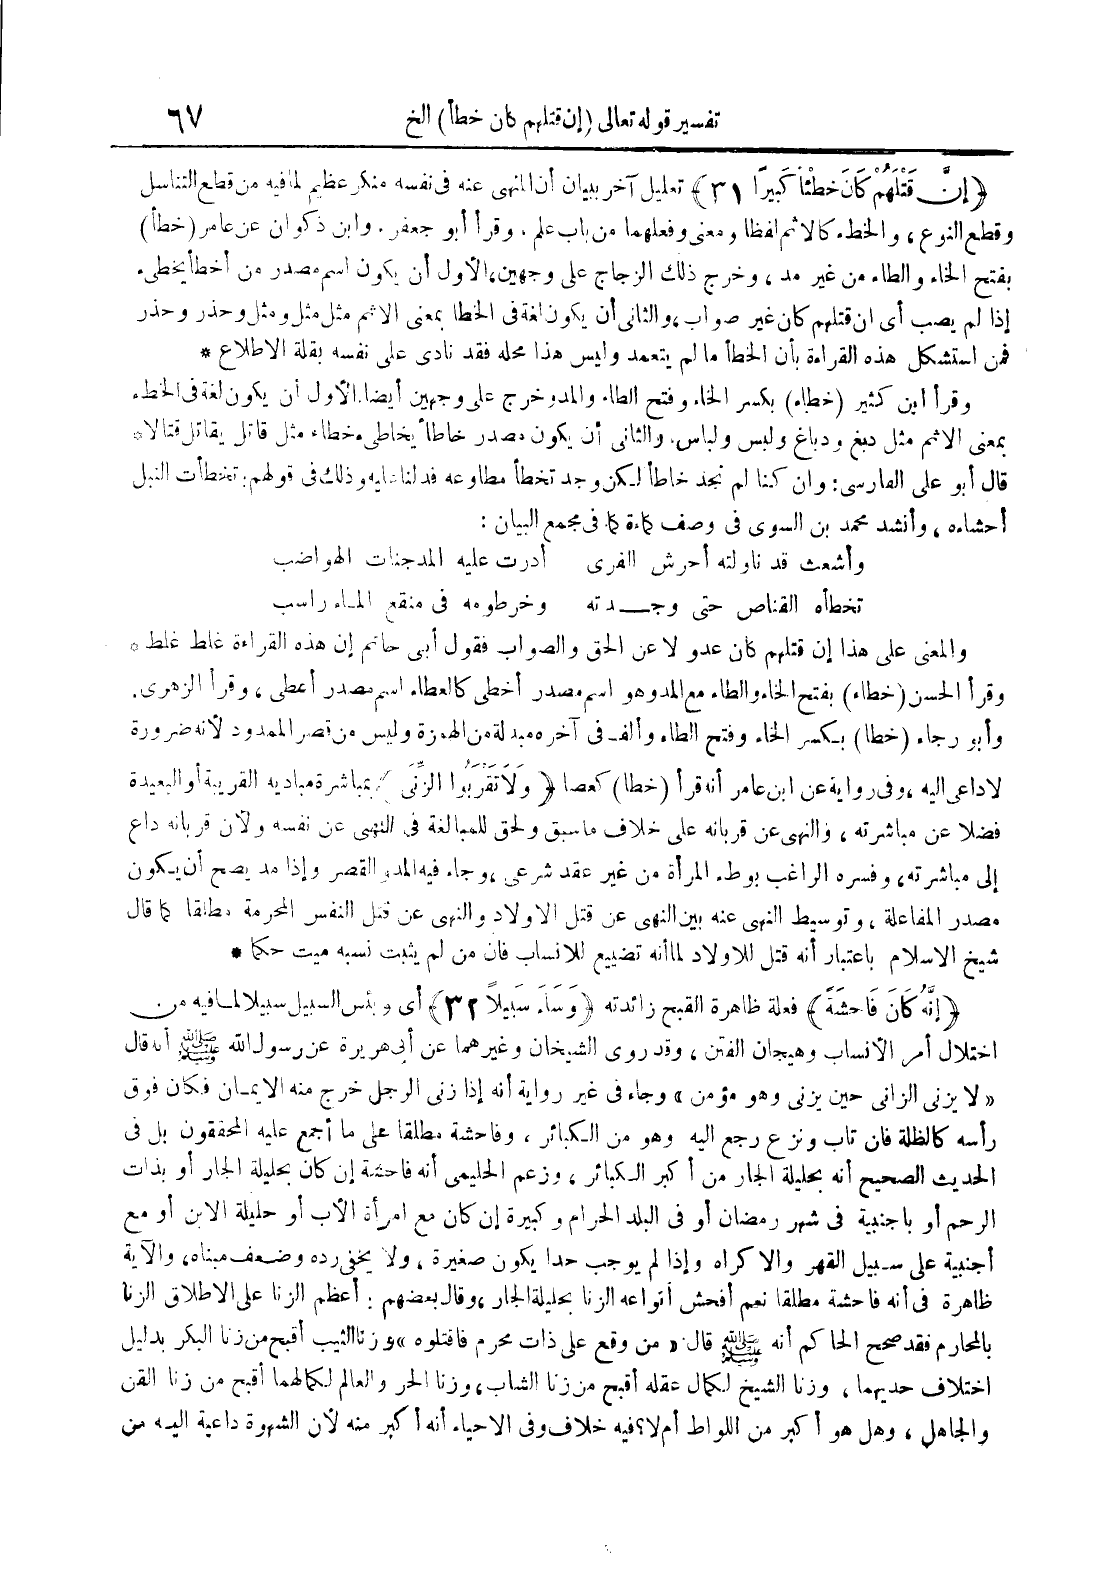 تفسير قوله تعالى (إن قتلهم كان خطأ) الخ ٦٧
﴿إِنَّ قَتْلَهُمْ كَانَ خِطْئًا كَبِيرًا ٣١﴾ تعليل آخر ببيان أن المنهى عنه فى نفسه منكر عظيم لما فيه من قطع التناسل
وقطع النوع ، والخطء كالاثم لفظا ومعنى وفعلهما من باب علم . وقرأ أبو جعفر . وابن ذكوان عن عامر (خطأ)
بفتح الخاء والطاء من غير مد ، وخرج ذلك الزجاج على وجهين،الأول أن يكون اسم مصدر من أخطأ يخطىء
إذا لم يصب أى ان قتلهم كان غير صواب ،والثانى أن يكون لغة فى الخطا بمعنى الاثم مثل مثل ومثل وحذر وحذر
فمن استشكل هذه القراءة بأن الخطأ ما لم يتعمد وليس هذا محله فقد نادى على نفسه بقلة الاطلاع *
وقرأ ابن كثير (خطاء) بكسر الخاء وفتح الطاء والمد وخرج على وجهين أيضا.الأول أن يكون لغة فى الخطء
بمعنى الاثم مثل دبغ ودباغ ولبس ولباس. والثانى أن يكون مصدر خاطأ يخاطىء خطاء مثل قاتل يقاتل قتالا*
قال أبو على الفارسى: وان كنا لم نجد خاطأ لكن وجد تخطأ مطاوعه فدلنا عليه وذلك فى قولهم: تخطأت النبل
أحشاءه ، وأنشد محمد بن السوى فى وصف كماءة كما فى مجمع البيان :
وأشعث قد ناولته أحرش الفرى أدرت عليه المدجنات الهواضب
تخطأه القناص حتى وجـــدته وخرطومه فى منقع الماء راسب
والمعنى على هذا إن قتلهم كان عدولا عن الحق والصواب فقول أبى حاتم إن هذه القراءة غلط غلط *
وقرأ الحسن (خطاء) بفتح الخاء والطاء مع المد وهو اسم مصدر أخطى كالعطاء اسم مصدر أعطى ، وقرأ الزهرى.
وأبو رجاء (خطا) بكسر الخاء وفتح الطاء وألف فى آخره مبدلة من الهمزة وليس من قصر الممدود لأنه ضرورة
لا داعى اليه ،وفى رواية عن ابن عامر أنه قرأ (خطا) كعصا ﴿ وَلَا تَقْرَبُوا الزِّنَى ﴾ بمباشرة مباديه القريبة أو البعيدة
فضلا عن مباشرته ، والنهى عن قربانه على خلاف ما سبق ولحق للمبالغة فى النهى عن نفسه ولأن قربانه داع
إلى مباشرته، وفسره الراغب بوطء المرأة من غير عقد شرعى ،وجاء فيه المد والقصر وإذا مد يصح أن يكون
مصدر المفاعلة ، وتوسيط النهى عنه بين النهى عن قتل الاولاد والنهى عن قتل النفس المحرمة مطلقا كما قال
شيخ الاسلام باعتبار أنه قتل للاولاد لما أنه تضييع للانساب فان من لم يثبت نسبه ميت حكما *
﴿إِنَّهُ كَانَ فَاحِشَةً﴾ فعلة ظاهرة القبح زائدته ﴿وَسَاءَ سَبِيلًا ٣٢﴾ أى وبئس السبيل سبيلا لما فيه من
اختلال أمر الأنساب وهيجان الفتن ، وقد روى الشيخان وغيرهما عن أبى هريرة عن رسول الله ﷺ أنه قال
« لا يزنى الزانى حين يزنى وهو مؤمن » وجاء فى غير رواية أنه إذا زنى الرجل خرج منه الايمان فكان فوق
رأسه كالظلة فان تاب ونزع رجع اليه وهو من الكبائر ، وفاحشة مطلقا على ما أجمع عليه المحققون بل فى
الحديث الصحيح أنه بحليلة الجار من أكبر الكبائر ، وزعم الحليمى أنه فاحشة إن كان بحليلة الجار أو بذات
الرحم أو باجنبية فى شهر رمضان أو فى البلد الحرام وكبيرة إن كان مع امرأة الأب أو حليلة الابن أو مع
أجنبية على سبيل القهر والاكراه وإذا لم يوجب حدا يكون صغيرة ، ولا يخفى رده وضعف مبناه، والآية
ظاهرة فى أنه فاحشة مطلقا نعم أفحش أنواعه الزنا بحليلة الجار ،وقال بعضهم : أعظم الزنا على الاطلاق الزنا
بالمحارم فقد صحح الحاكم أنه ﷺ قال « من وقع على ذات محرم فاقتلوه » وزنا الثيب أقبح من زنا البكر بدليل
اختلاف حديهما ، وزنا الشيخ لكمال عقله أقبح من زنا الشاب، وزنا الحر والعالم لكمالهما أقبح من زنا القن
والجاهل ، وهل هو أكبر من اللواط أم لا؟ فيه خلاف وفى الاحياء أنه أكبر منه لأن الشهوة داعية اليه من